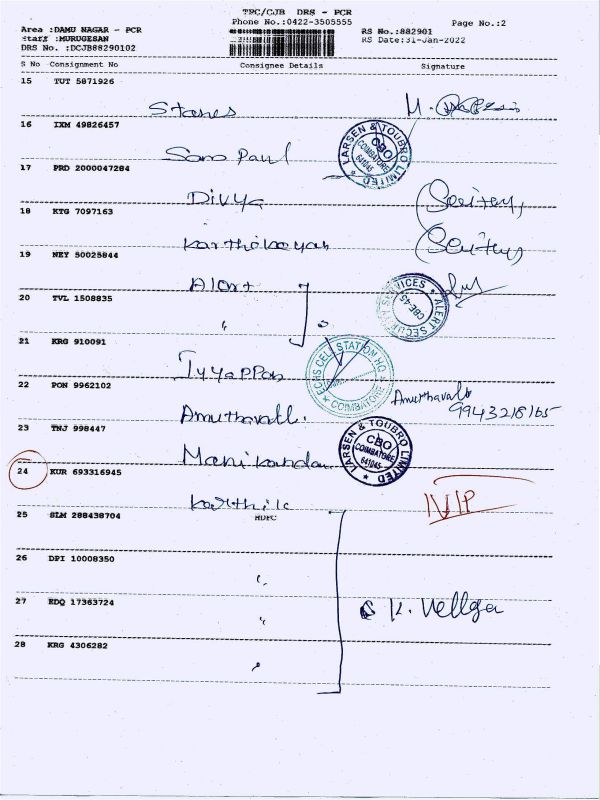 TPC/CJB DRS - PCR
Phone No.:0422-3505555
Page No.:2
Area :DAMU NAGAR - PCR
Staff :MURUGESAN
DRS No. :DCJB88290102
RS No.:882901
RS Date:31-Jan-2022
S No Consignment No Consignee Details Signature
15 TUT 5871926
Stanes
16 IXM 49826457
LARSEN & TOUBRO LIMITED
CBO
COIMBATORE
641045
Paul
17 PRD 2000047284
Divya
18 KTG 7097163
Karthikeyan
19 NEY 50025844
Alert
ALERT SECURITY SERVICES
CBE-45
20 TVL 1508835
"
21 KRG 910091
Iyyappan
ECHS CELL STATION HQ
COIMBATORE
22 PON 9962102
Amuthavalli
Amuthavalli
9943218165
23 TNJ 998447
Manikandan
LARSEN & TOUBRO LIMITED
CBO
COIMBATORE
641045
24 KUR 693316945
Karthik
25 SLM 288438704
HDFC
26 DPI 10008350
"
27 EDQ 17363724
"
K. Vellga
28 KRG 4306282
"